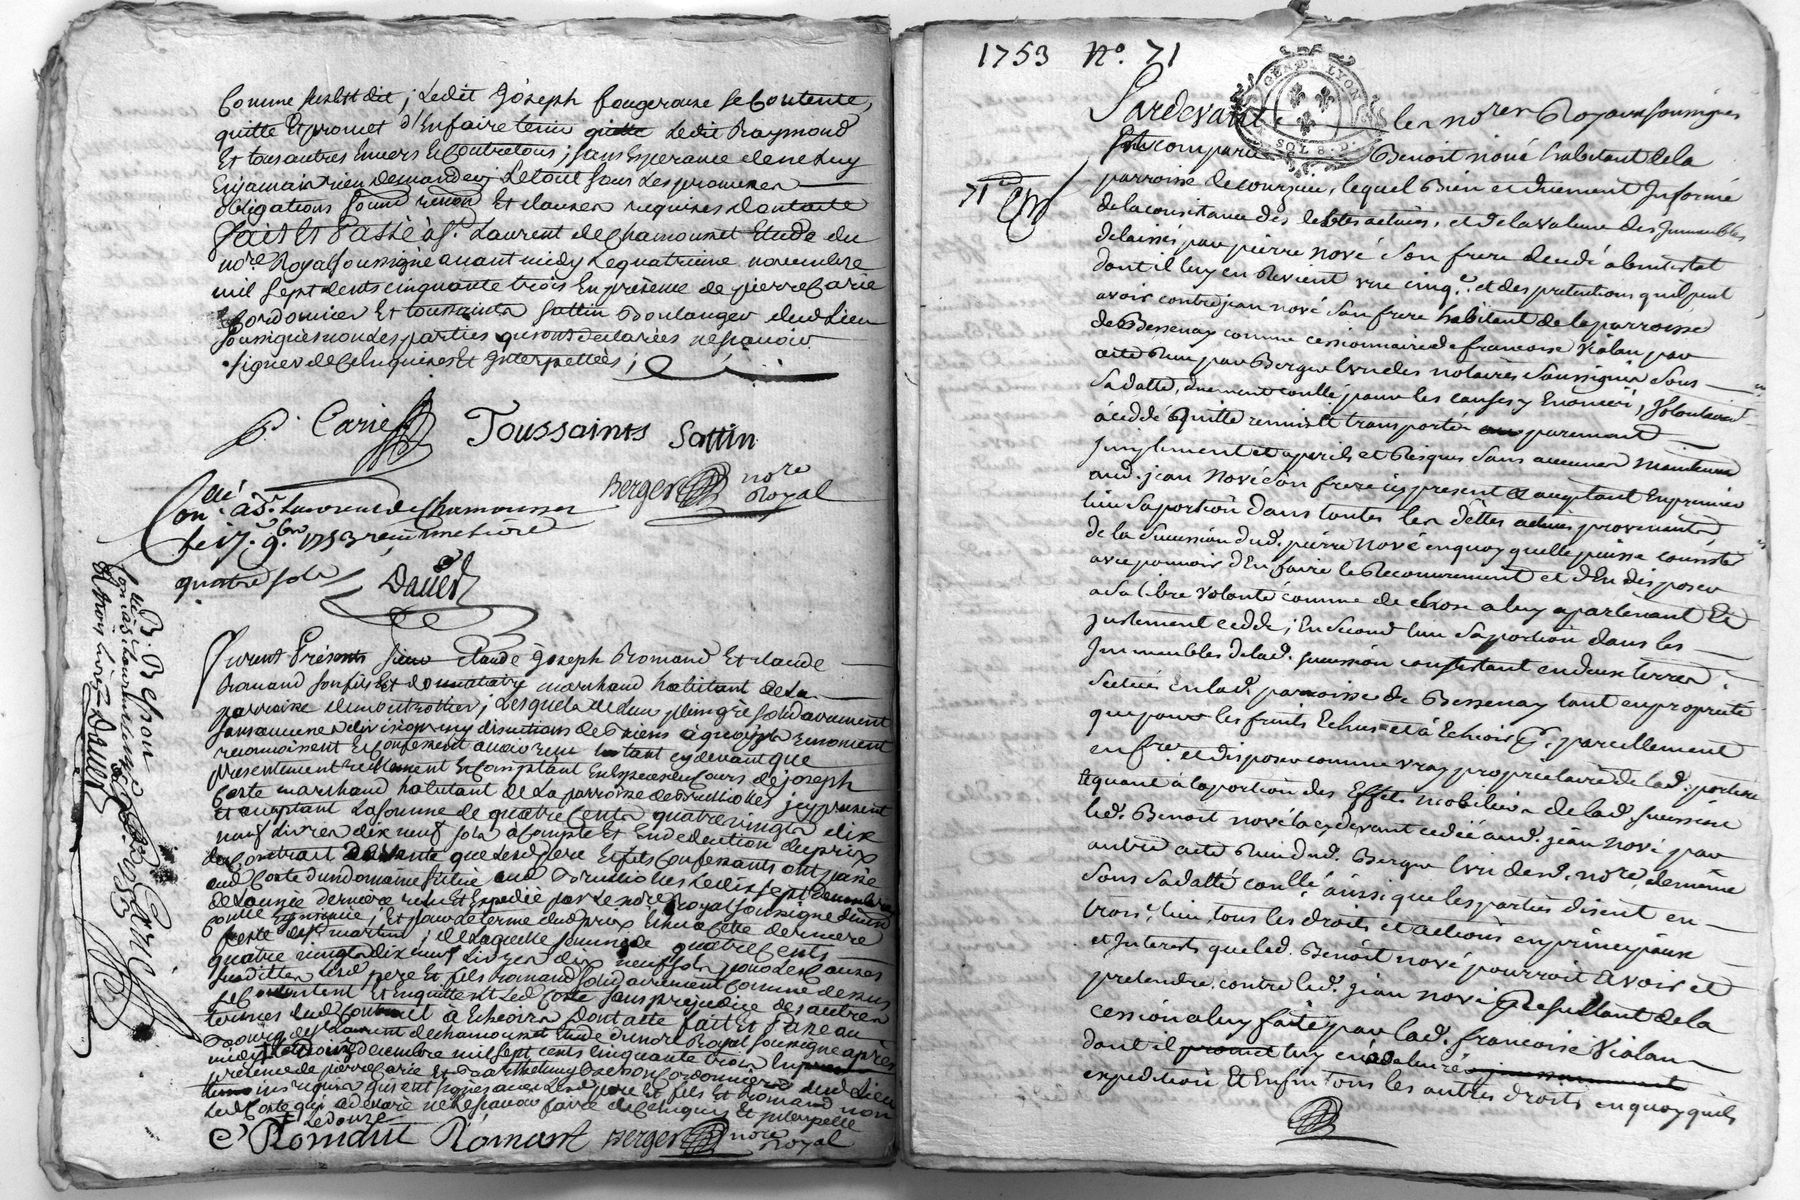 Comme susdit dit ; Ledit Joseph fougerouse se Contente,
quitte Et promet d'En faire tenir quitte Ledit Raymond
Et tous autres Envers Et Contre tous ; sans Esperance de ne Luy
En jamais rien demander ; Le tout sous Les promesses
obligations soumd renond Et clauses requises dont acte
fait Et Passé à St. Laurent de Chamousset Etude du
nore. Royal soussigné avant midy Le quatrieme novembre
mil sept Cents cinquante trois En présence de pierre Carie
Cordonnier Et toussaints Sattin Boulanger dud Lieu
soussignés non Les parties qui ont declarées ne scavoir
signer de Ce Enquises Et Interpellées ;
P. Carie Toussaints Sattin
Berger nore Royal
Conlé. à St. Laurent de Chamousset
Le 17. 9bre 1753 reçu
quatre sols
Dauer
Furent Présents sieur claude Joseph Romand Et claude
Romand son fils Et donnataire marchand habitant de La
parroisse de montrottier ; Lesquels de Leur plein gré solidairement
sans aucune division ny discution de Biens à quoy ils renoncent
reconnoissent Et Confessent avoir reçu Contant cy devant que
presentement reellement Et Comptant En Especes du Cours de joseph
Coste marchand habitant de La parroisse de Brullioles jcy present
Et acceptant La somme de quatre Cents quatre vingts dix
neuf Livres dix neuf sols à Compte Et En deduction du prix
du Contrait de vente que Lesd pere Et fils Confessants ont passé
aud Coste d'un domaine situé aud Brullioles Le dix sept decembre
de L'année derniere reçu Et Expedié par Le nore Royal soussigné
feste de St martin ; de Laquelle somme de quatre Cents
quatre vingts dix neuf Livres dix neuf sols pour Les Causes
susdittes Lesd pere Et fils Romand solidairement Comme dessus
se Contentent Et En quittent Led Coste sans prejudice des autres
termes dud Contrait à Echeoir dont acte fait Et Passé au
Bourg de St Laurent de Chamousset Etude du nore Royal soussigné après
midy Le decembre mil sept cents cinquante trois
presence de pierre Carie Et Barthelemy Besson Cordonniers dud Lieu
requis qui ont signés avec Lesd pere Et fils Romand non
Led Coste qui a declaré ne scavoir faire de Ce Enquis Et Interpellé
Le douze
C Romand Romand Berger nore Royal
B. Besson P. Carie
Conlé à St Laurent
Dauer
1753 No. 71
GEN. DE LYON
SOL 8. D.
Pardevant les nores Royaux soussignés
Est comparu Benoit nové habitant de la
71e
parroisse de courzieu, lequel Bien et duement Informé
de la consistance des debtes actives, et de la valeur des Immeubles
delaissés par pierre nové son frere decedé abintestat
dont il luy en Revient une cinqe. et des pretentions quil peut
avoir contre jean nové son frere habitant de la parroisse
de Bessenay comme cessionnaire de francoise Vialan par
acte Reçu par Berger L'un des notaires soussignés sous
sa datte, duement conllé, pour les causes y Enoncées, Volontairement
à cedé quitté remis et transporté purement
simplement et à perils et Risques sans aucune maintenue
aud. jean Nové son frere icy present et acceptant En premier
lieu sa portion dans toutes les dettes actives provenantes
de la succession dud. pierre Nové en quoy quelle puisse consister
avec pouvoir d'En faire le Recouvrement et d'En disposer
a sa libre volonté comme de chose a luy apartenant Et
justement cedée ; En second lieu sa portion dans les
Immeubles de lad. succession consistant en deux terres
scituées en lad. parroisse de Bessenay tant en propriété
que pour les fruits Echus et à Echeoir pareillement
en et disposer comme vray proprietaire de lad. portion
et quant à la portion des Effets mobiliers de lad. succession
led. Benoit nové l'a cydevant cedée aud. jean nové par
autre acte Reçu dud. Berger L'un desd. nores, de même
sous sa datte conllé ainsi que les parties disent en
troise. lieu tous les droits et actions en principaux
et Interets que led. Benoit nové pourroit Avoir et
pretendre contre led. jean nové Resultant de la
cession a luy faite par lad. francoise Vialan
dont il luy en a delivré
expedition Et Enfin tous les autres droits en quoy quils